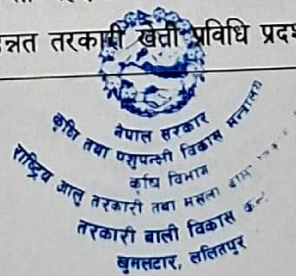 न्नत तरकारी खेती प्रविधि प्रदर्श
नेपाल सरकार
कृषि तथा पशुपन्छी विकास मन्त्रालय
कृषि विभाग
राष्ट्रिय आलु तरकारी तथा मसला बाली
तरकारी बाली विकास
खुमलटार, ललितपुर